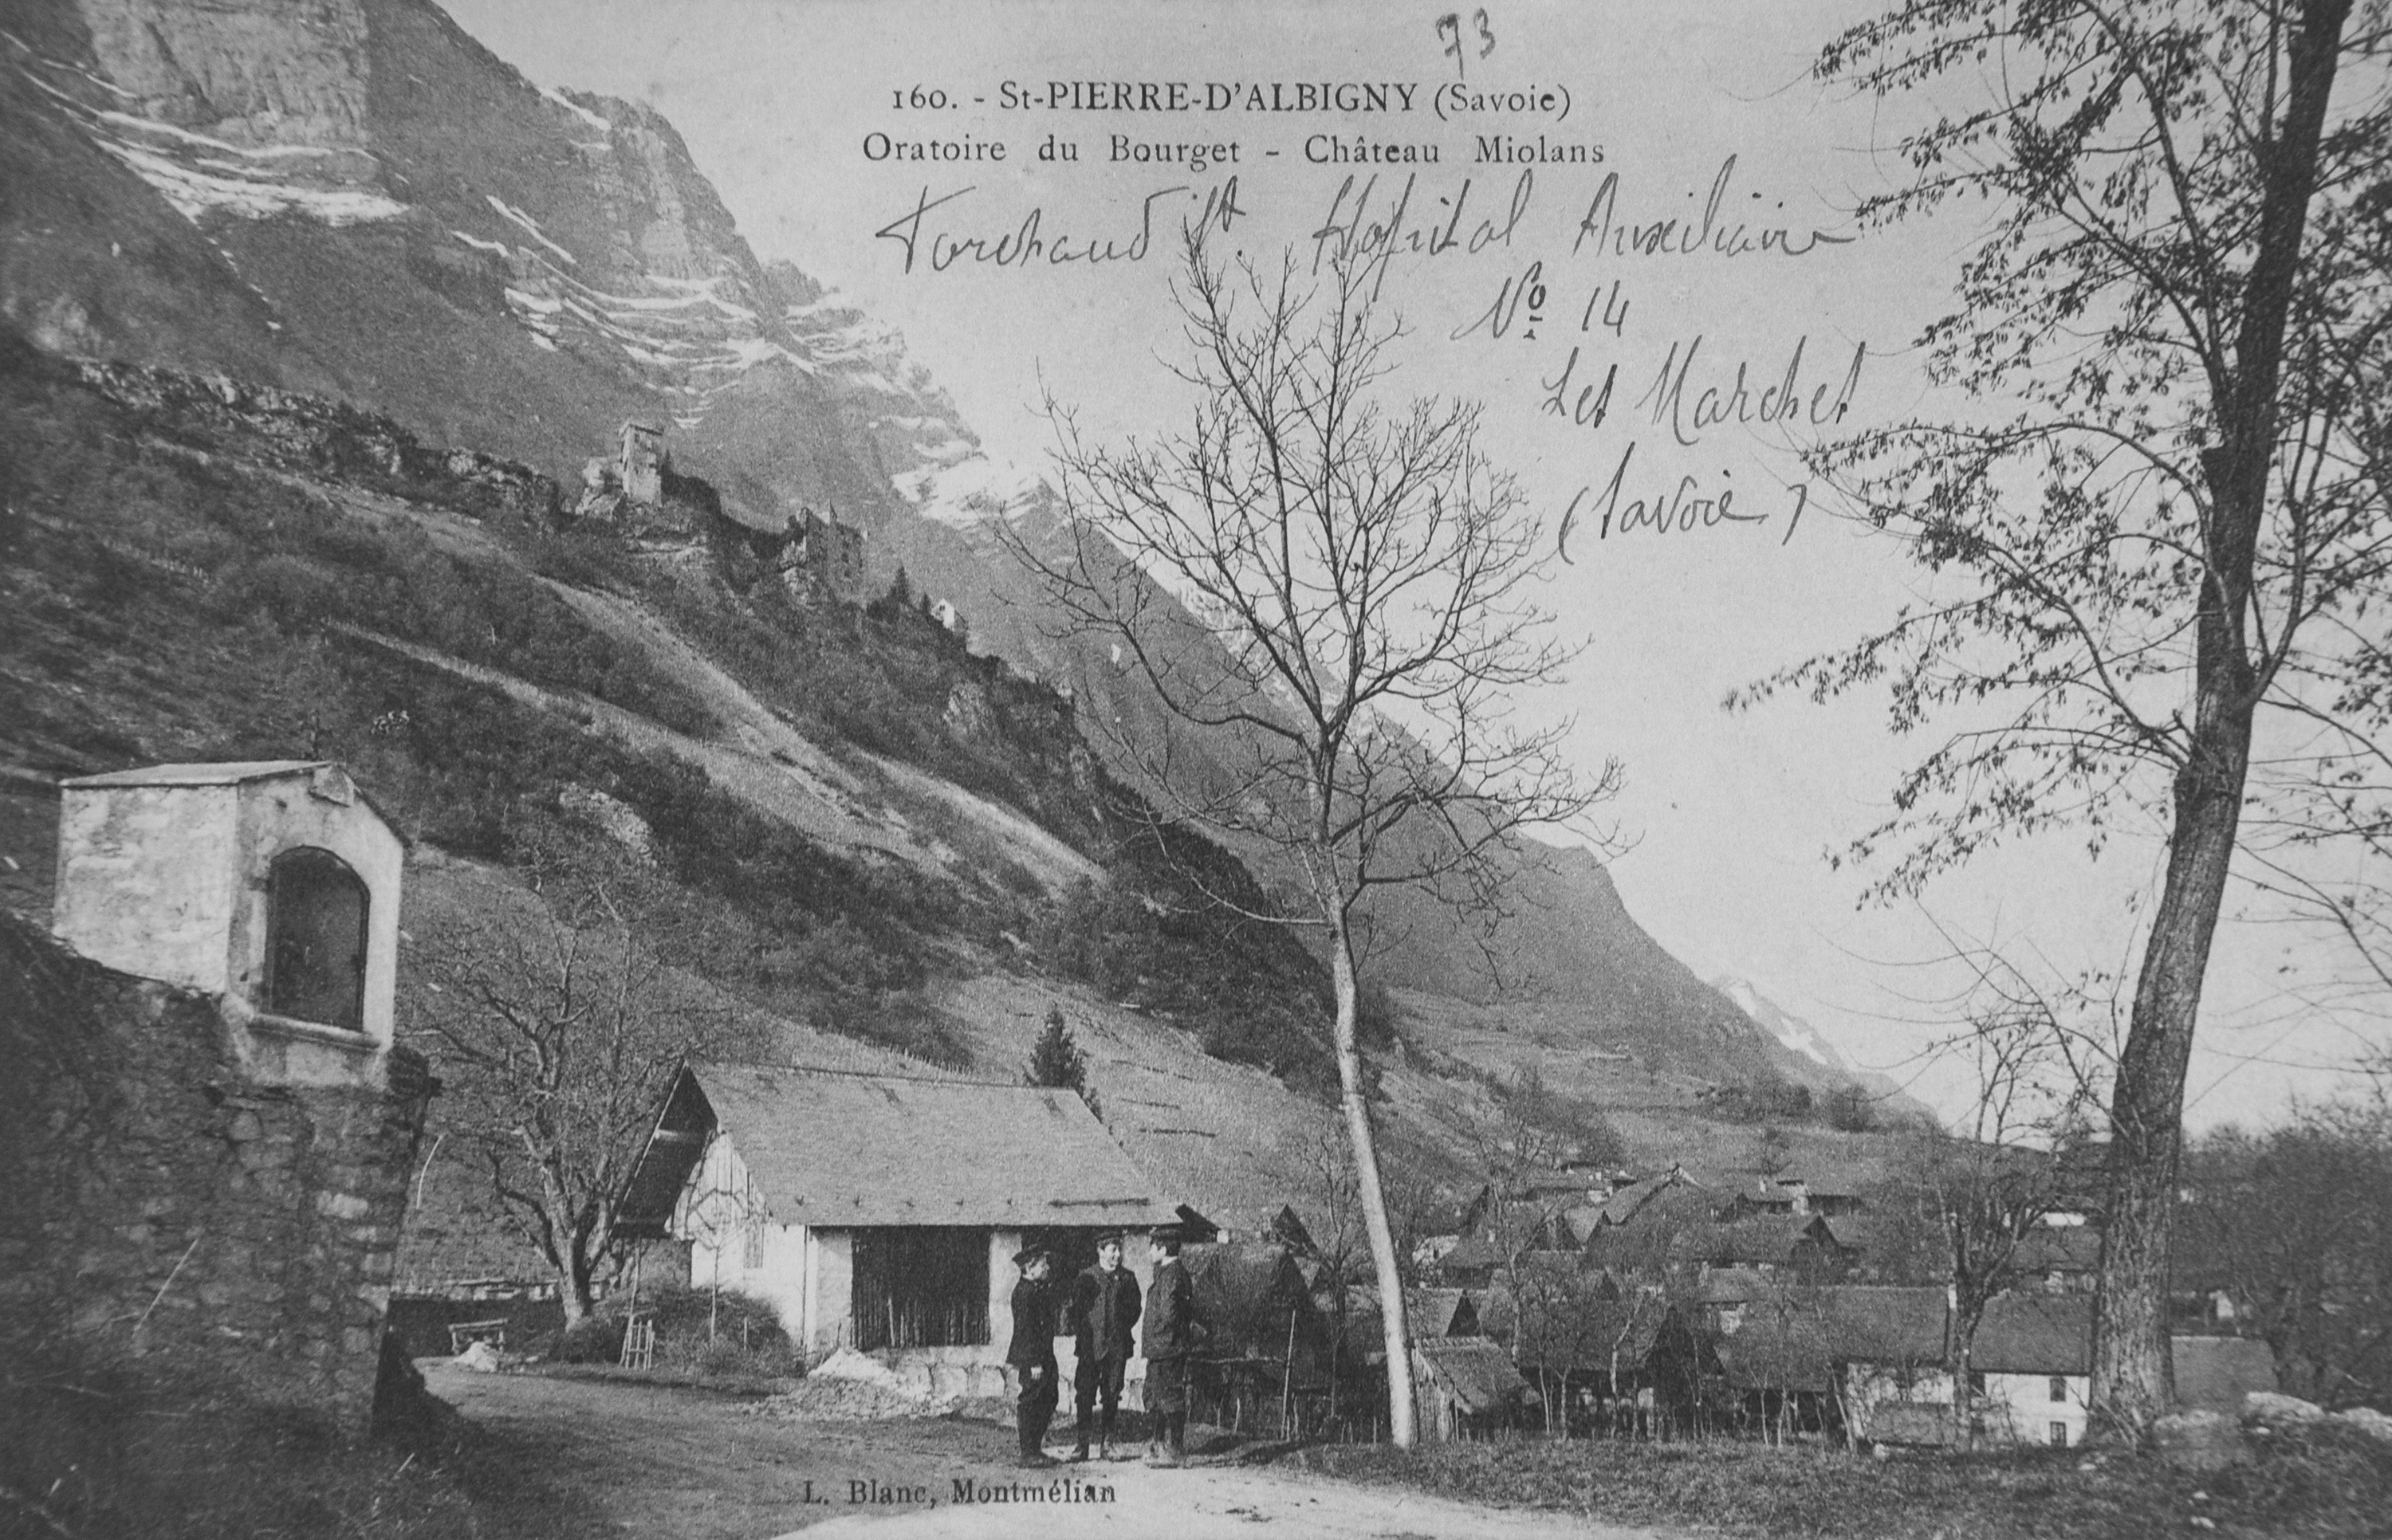 73
160. - St-PIERRE-D'ALBIGNY (Savoie)
Oratoire du Bourget - Château Miolans
Hopital Auxiliaire
No 14
Les Marches
(Savoie)
L. Blanc, Montmélian